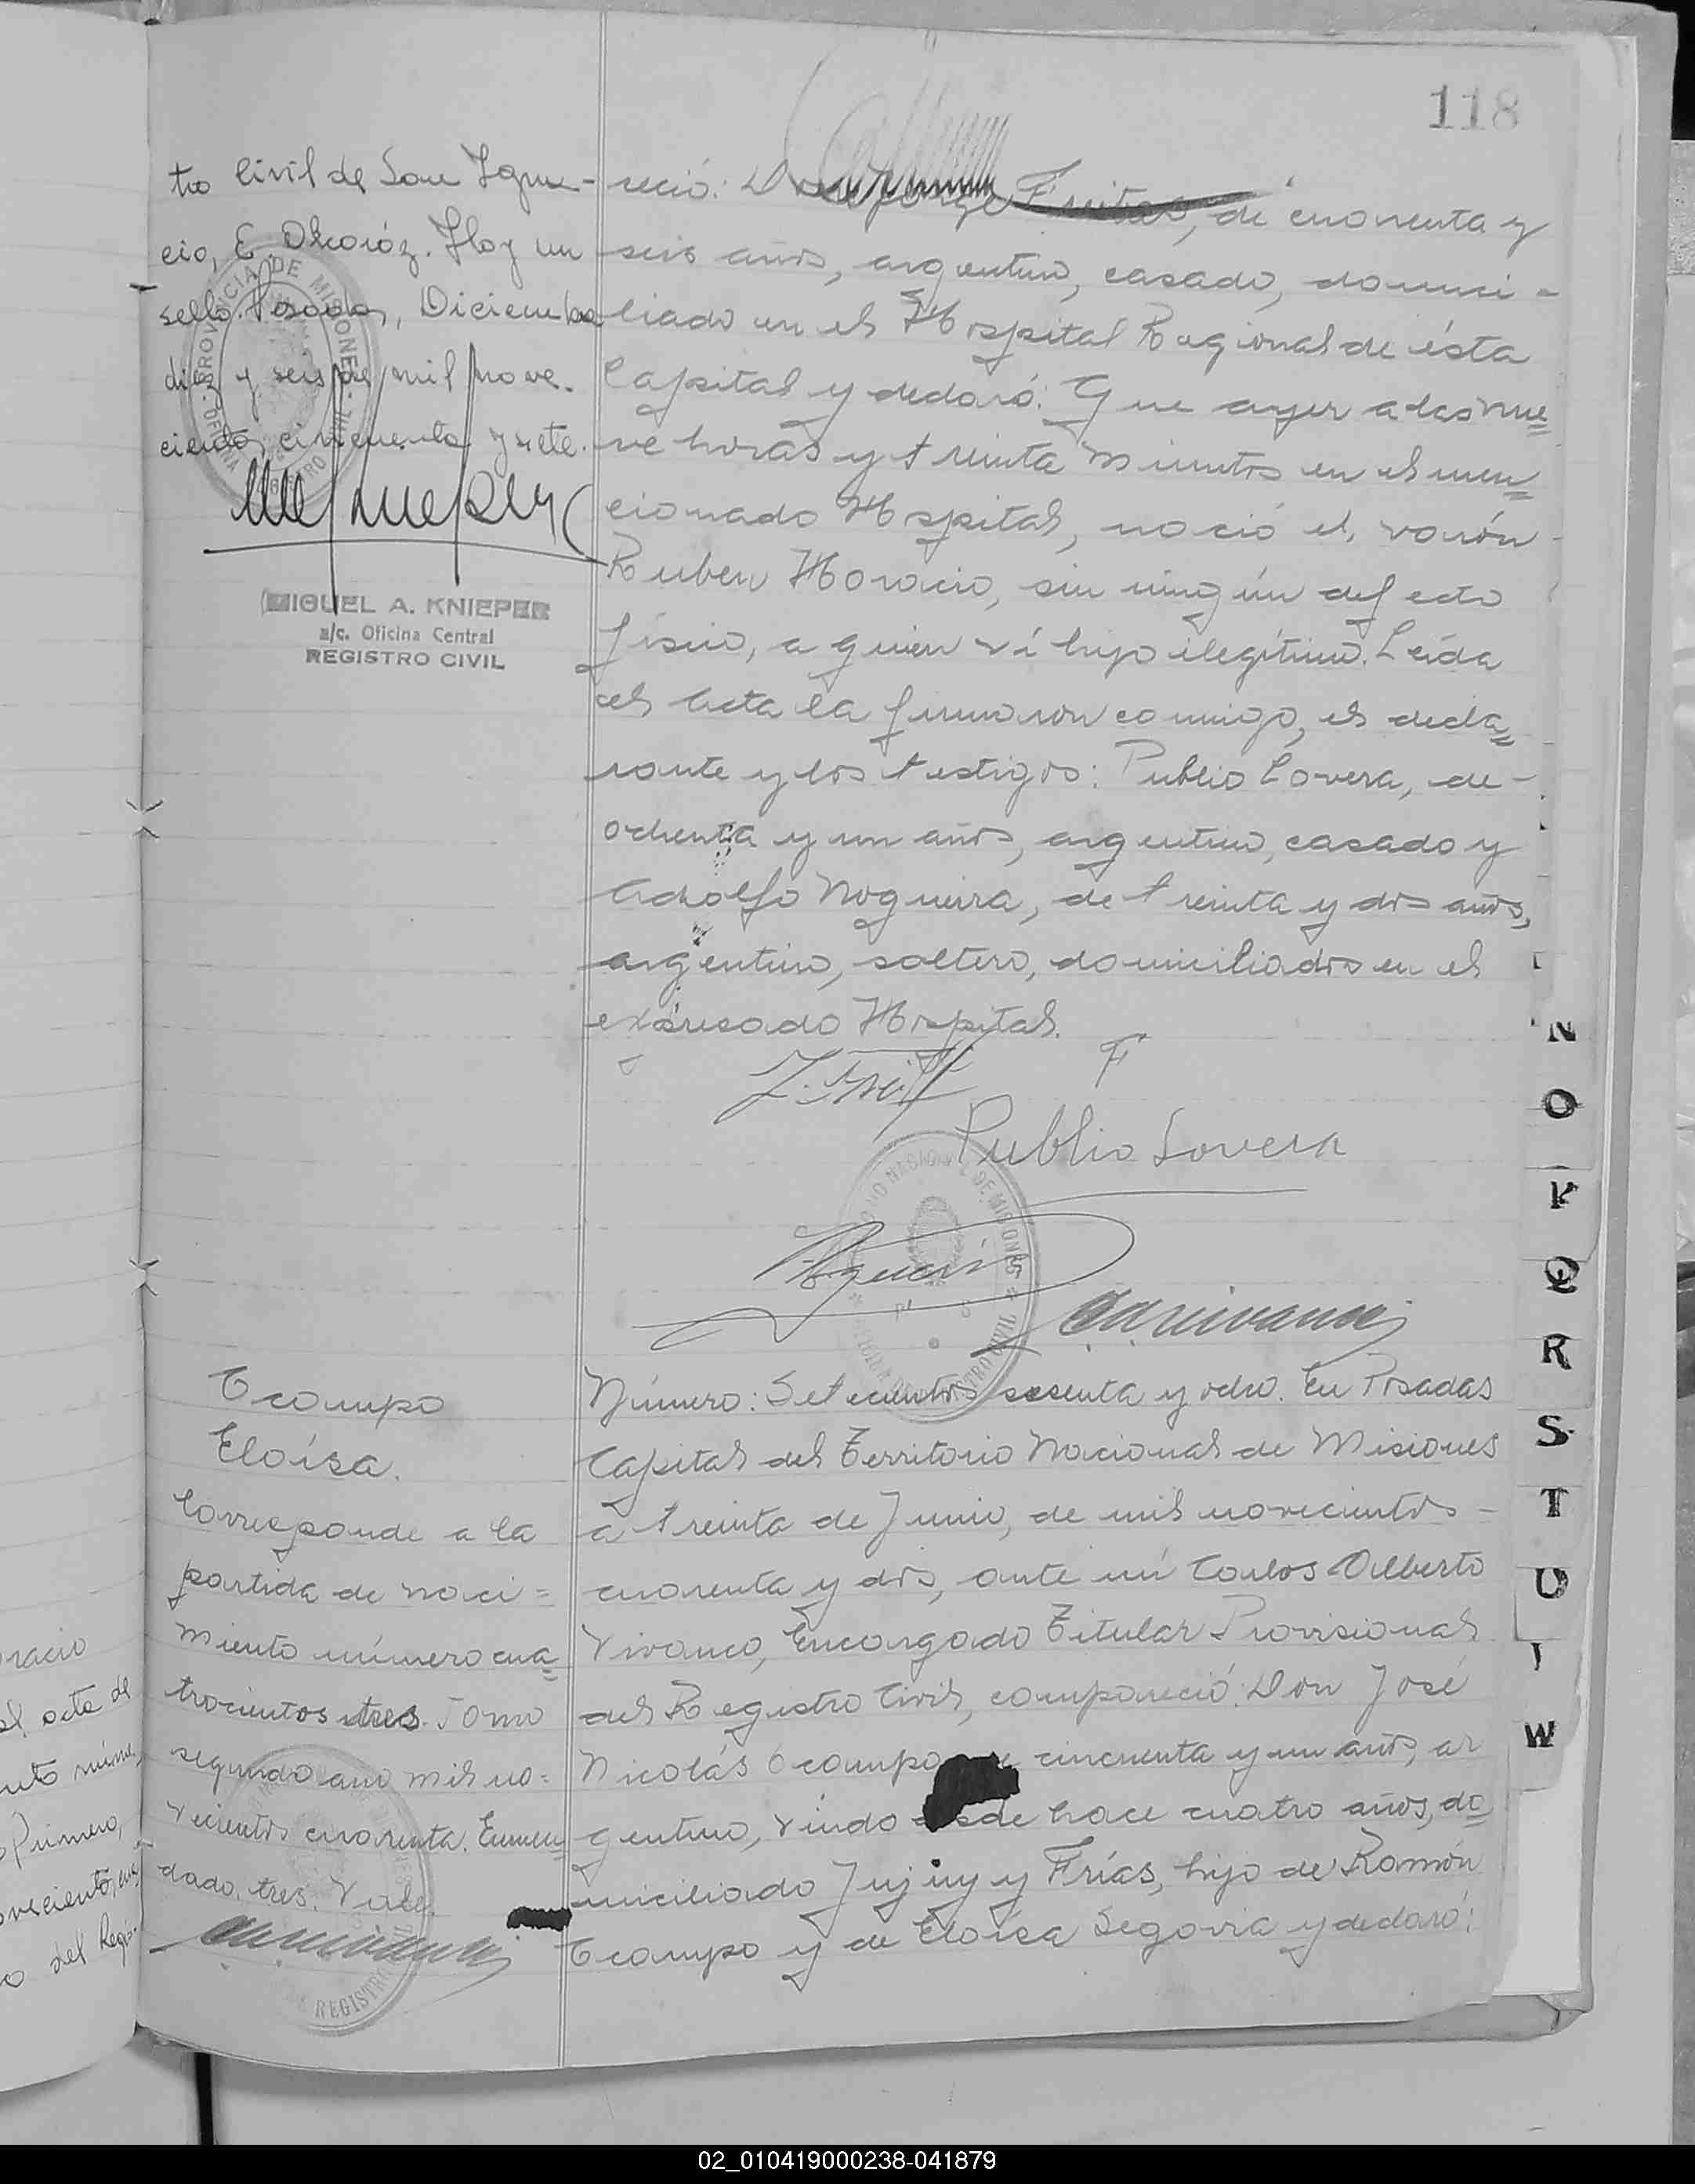 118
tro Civil de San Igna-
cio, E. Hay un
sello. Posadas, Diciembre
diez y seis de mil nove-
cientos cincuenta y siete.
MIGUEL A. KNIEPER
a/c. Oficina Central
REGISTRO CIVIL
PROVINCIA DE MISIONES
reció: Don Jorge Freitas, de cuarenta y
seis años, argentino, casado, domici-
liado en el Hospital Regional de ésta
Capital y declaró: Que ayer a las nue=
ve horas y treinta minutos en el men=
cionado Hospital, nació el varón
Ruben Horacio, sin ningún defecto
físico, a quien ví hijo ilegítimo. Leída
el Acta la firmaron conmigo, el decla=
rante y los testigos: Publio Lovera, de-
ochenta y un años, argentino, casado y
Adolfo Nogueira, de treinta y dos años,
argentino, soltero, domiciliados en el
expresado Hospital.
F
Publio Lovera
Ocampo
Eloísa.
Corresponde a la
partida de naci=
miento número cua=
trocientos tres. Tomo
segundo año mil no=
vecientos cuarenta. Enmen=
dado, tres. Vale.
Número: Setecientos sesenta y ocho. En Posadas
Capital del Territorio Nacional de Misiones
a treinta de Junio, de mil novecientos -
cuarenta y dos, ante mí Carlos Alberto
Vivanco, Encargado Titular Provisional
del Registro Civil, compareció: Don José
Nicolás Ocampo cincuenta y un años, ar
gentino, viudo desde hace cuatro años, do=
miciliado Jujuy y Frías, hijo de Ramón
Ocampo y de Eloísa Segovia y declaró:
N
O
P
Q
R
S
T
U
W
racio
el acta de
Primero,
del Regis-
02_010419000238-041879